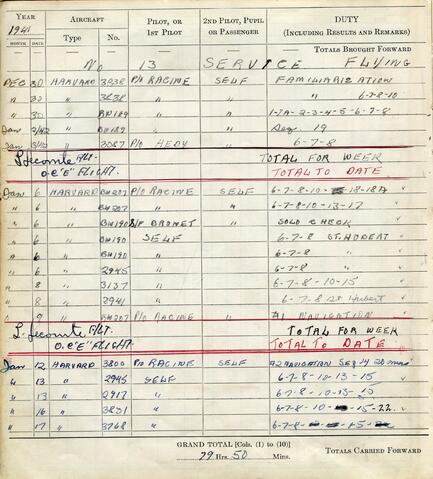 YEAR AIRCRAFT PILOT, OR 1ST PILOT 2ND PILOT, PUPIL OR PASSENGER DUTY (INCLUDING RESULTS AND REMARKS)
1941
MONTH DATE Type No. TOTALS BROUGHT FORWARD
No 13 SERVICE FLYING
DEC 30 HARVARD 3838 P/O RACINE SELF FAMILIARIZATION
" 30 " 3838 " " 6-7-8-10
" 30 " BW189 " " 1-1A-2-3-4-5-6-7-8
Jan 2/42 " BW189 " " 19
Jan 3/42 " 3057 P/O HEDY " 6-7-8
L. Lecomte F/Lt. TOTAL FOR WEEK
O.C. "E" FLIGHT. TOTAL TO DATE
Jan 6 HARVARD BW207 P/O RACINE SELF 6-7-8-10-18-18A
" 6 " BW207 " " 6-7-8-10-13-17
" 6 " BW190 S/P BROWET " SOLO CHECK
" 6 " BW190 SELF 6-7-8 ST. HUBERT
" 6 " BW190 " 6-7-8 "
" 8 " 2945 " 6-7-8 "
" 8 " 3137 " 6-7-8-10-15
" 8 " 2941 " 6-7-8 St Hubert
" 9 " BW207 P/O RACINE SELF #1 NAVIGATION
L. Lecomte F/Lt TOTAL FOR WEEK
O.C. "E" FLIGHT. TOTAL TO DATE
Jan 12 HARVARD 3800 P/O RACINE SELF #2 NAVIGATION SEQ 14 20 mins
" 13 " 2945 SELF 6-7-8-10-13-15
" 13 " 2917 " 6-7-8-10-13-15
" 16 " 3831 " 6-7-8-10-15-22
" 17 " 3768 " 6-7-8-15-22
GRAND TOTAL [Cols. (1) to (10)]
79 Hrs. 50 Mins. TOTALS CARRIED FORWARD